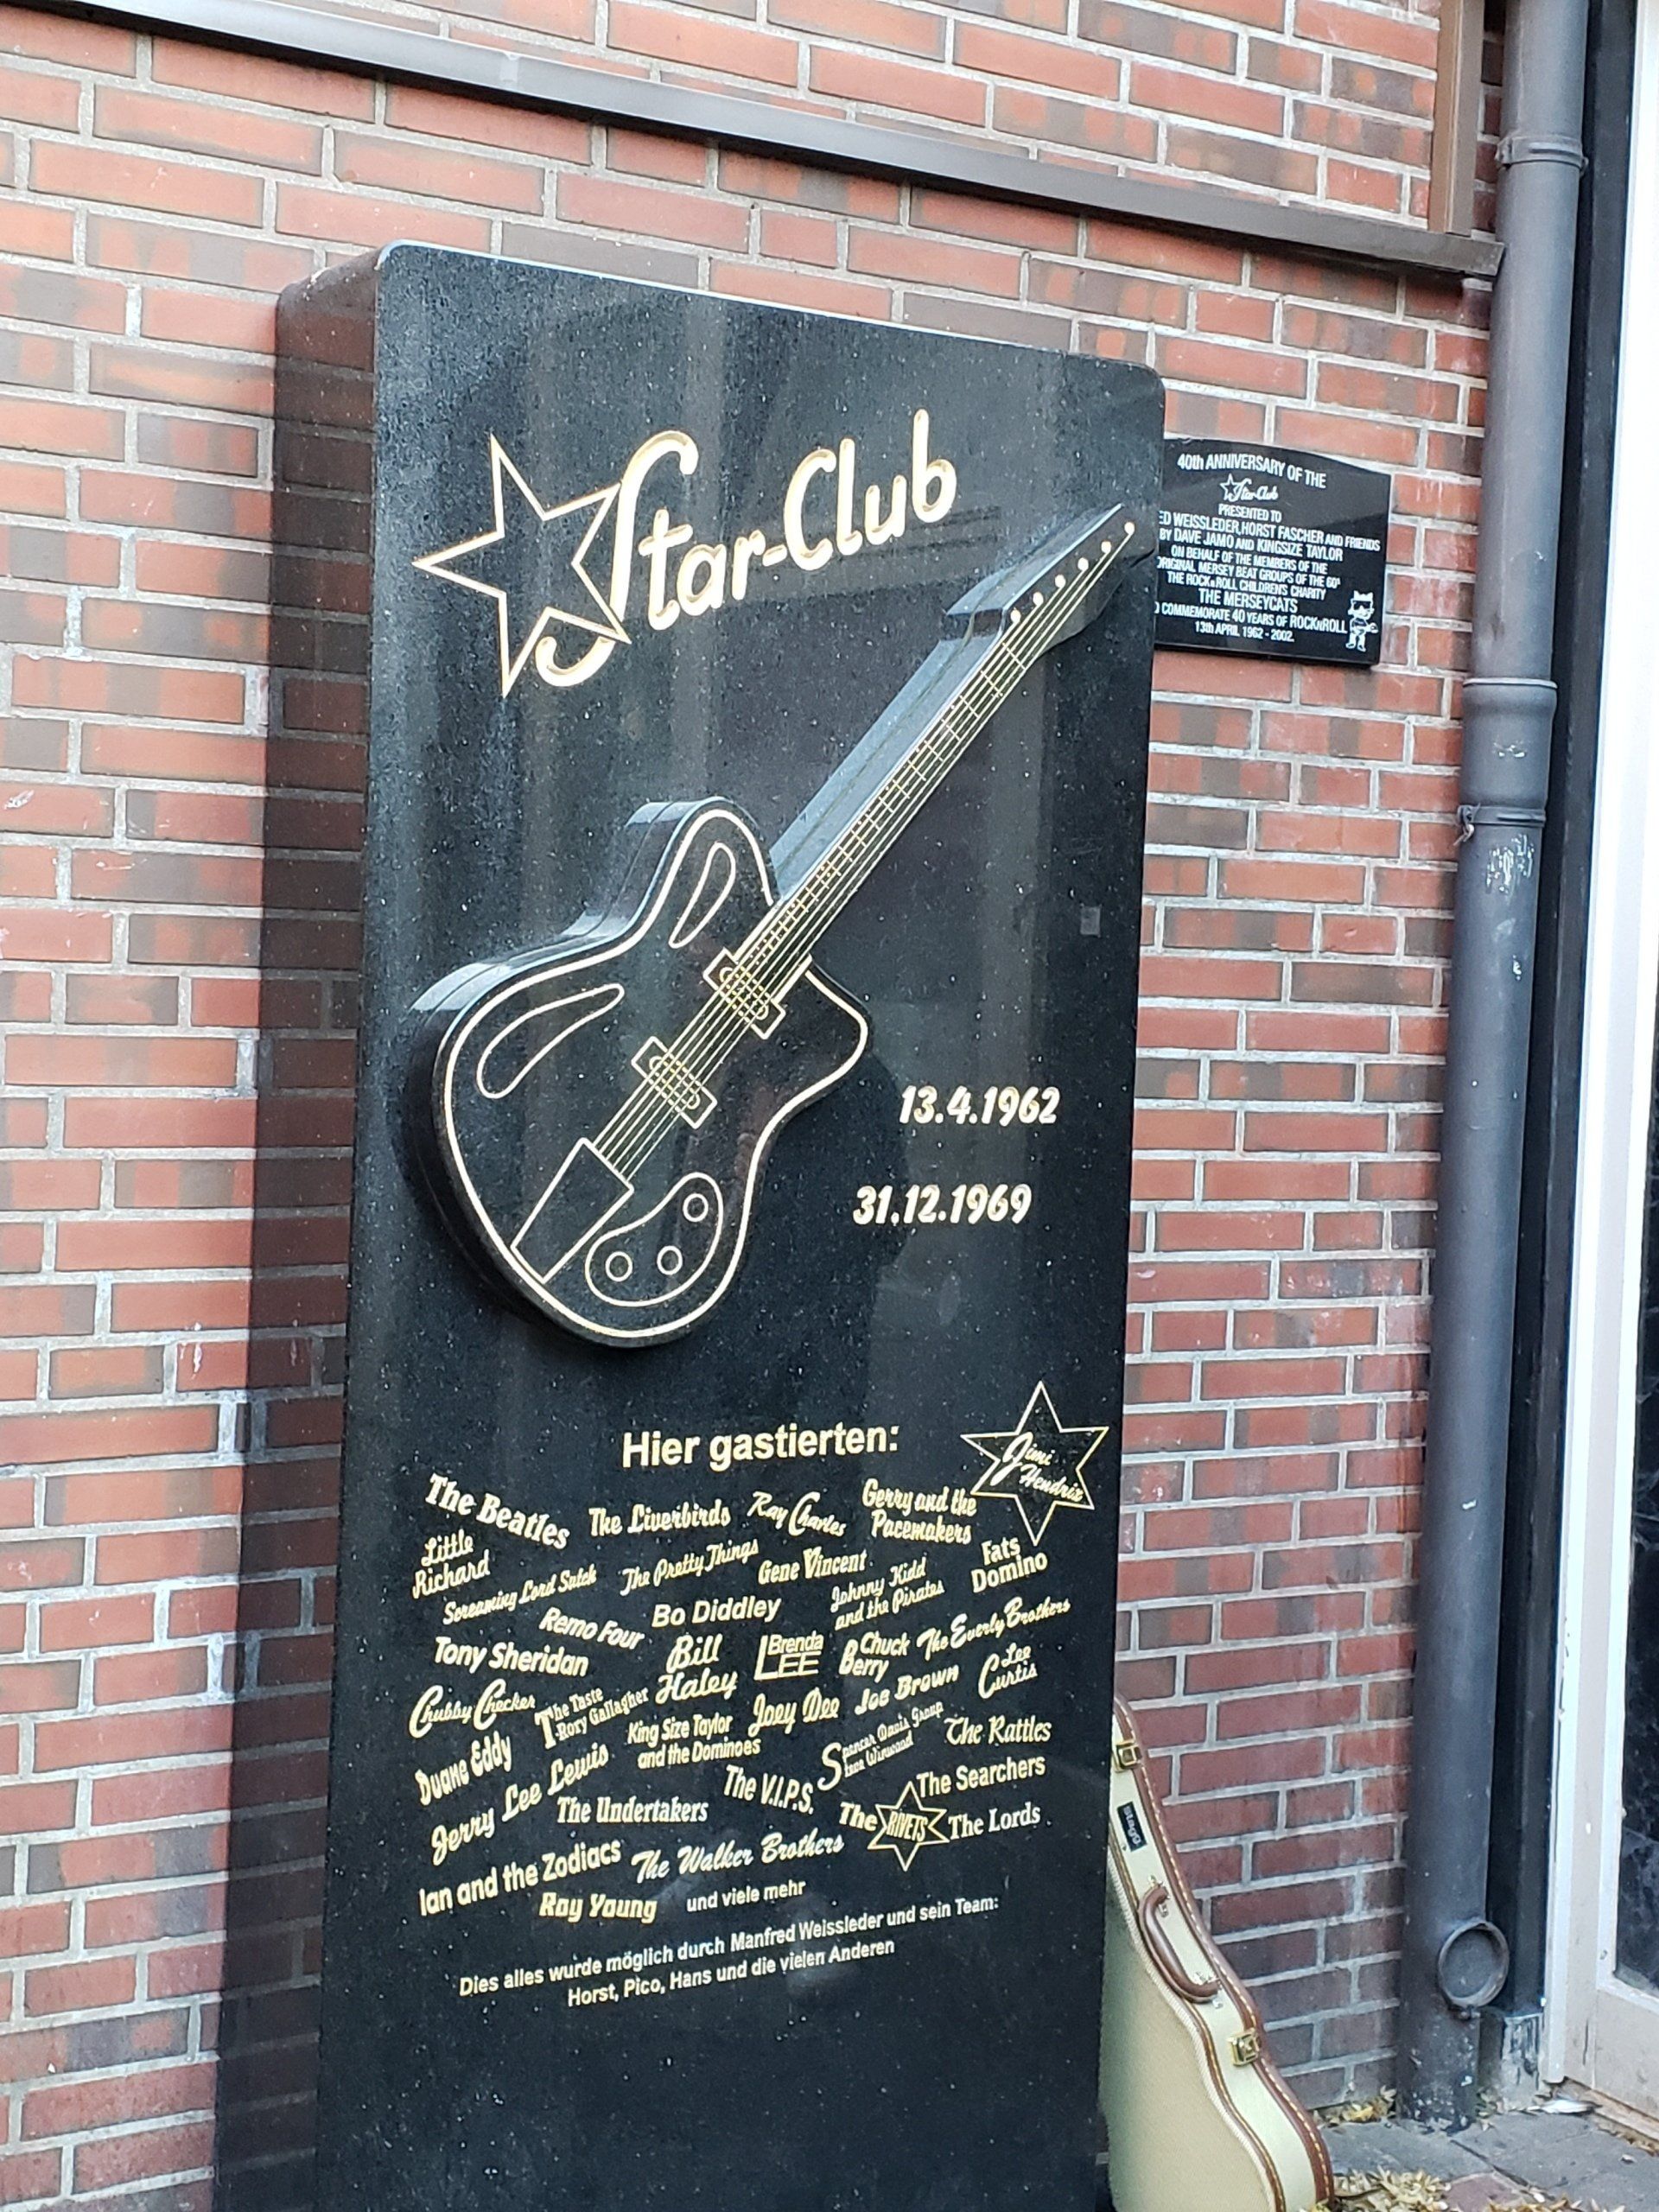 Star-Club
13.4.1962
31.12.1969
Hier gastierten:
Jimi
Hendrix
The Beatles
The Liverbirds
Ray Charles
Gerry and the
Pacemakers
Little
Richard
Screaming Lord Sutch
The Pretty Things
Gene Vincent
Johnny Kidd
and the Pirates
Fats
Domino
Remo Four
Bo Diddley
Tony Sheridan
Bill
Haley
Brenda
LEE
Chuck
Berry
The Everly Brothers
Chubby Checker
The Taste
Rory Gallagher
Joey Dee
Joe Brown
Lee
Curtis
Duane Eddy
King Size Taylor
and the Dominoes
Spencer Davis Group
Steve Winwood
The Rattles
Jerry Lee Lewis
The V.I.P.S.
The Searchers
The Undertakers
The RIVETS
The Lords
Ian and the Zodiacs
The Walker Brothers
Roy Young
und viele mehr
Dies alles wurde möglich durch Manfred Weissleder und sein Team:
Horst, Pico, Hans und die vielen Anderen
40th ANNIVERSARY OF THE
Star-Club
PRESENTED TO
WEISSLEDER, HORST FASCHER AND FRIENDS
BY DAVE JAMO AND KINGSIZE TAYLOR
ON BEHALF OF THE MEMBERS OF THE
ORIGINAL MERSEY BEAT GROUPS OF THE 60s
THE ROCK n ROLL CHILDREN'S CHARITY
THE MERSEYCATS
COMMEMORATE 40 YEARS OF ROCK n ROLL
13th APRIL 1962 - 2002.
STAGG